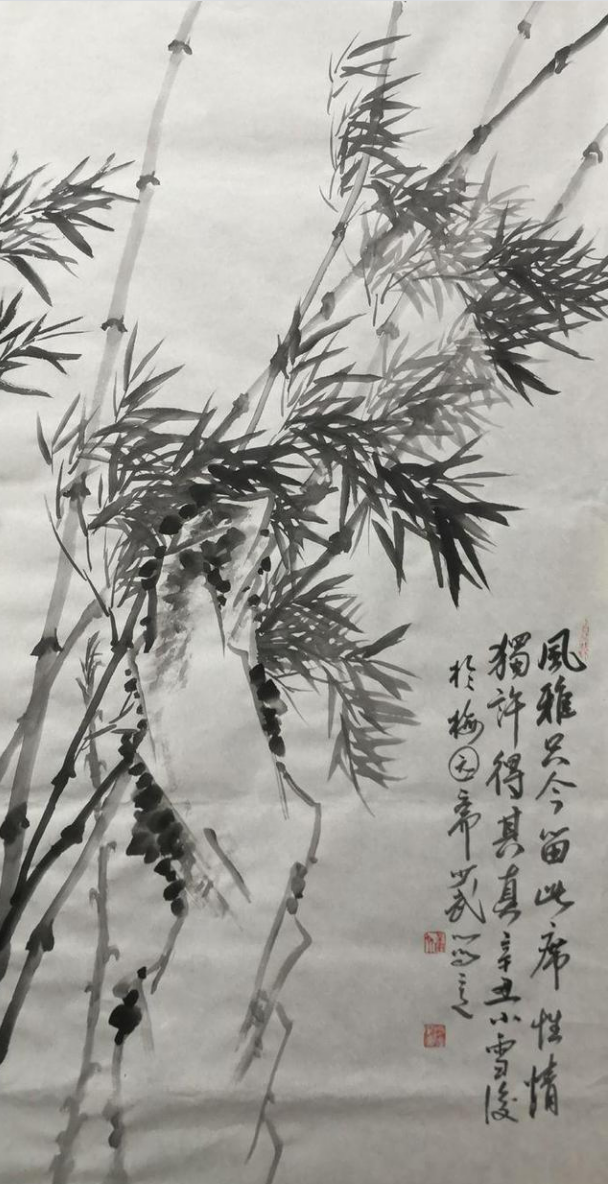 風雅只今留此席性情
獨許得其真辛丑小雪後
於梅園帝武寫之